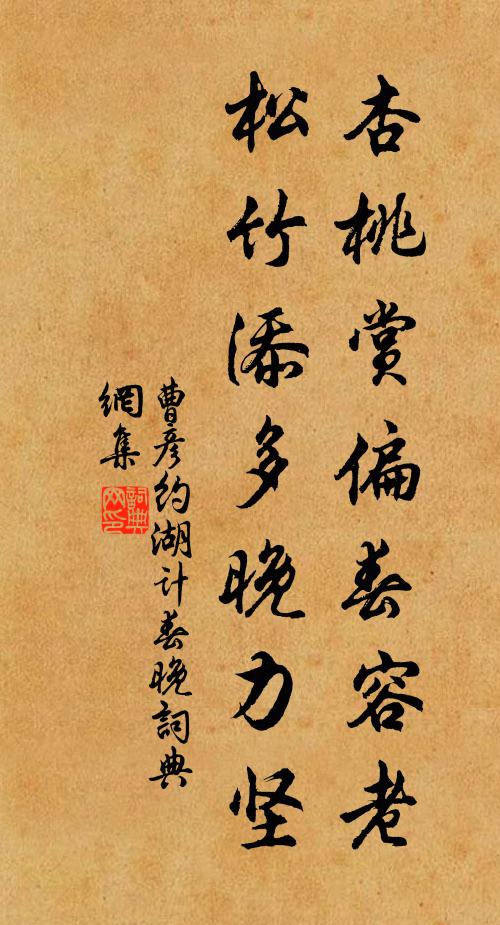 杏桃赏偏春容老
松竹添多晚力坚
曹彦约湖计春晚词典
網集
詞典
网印